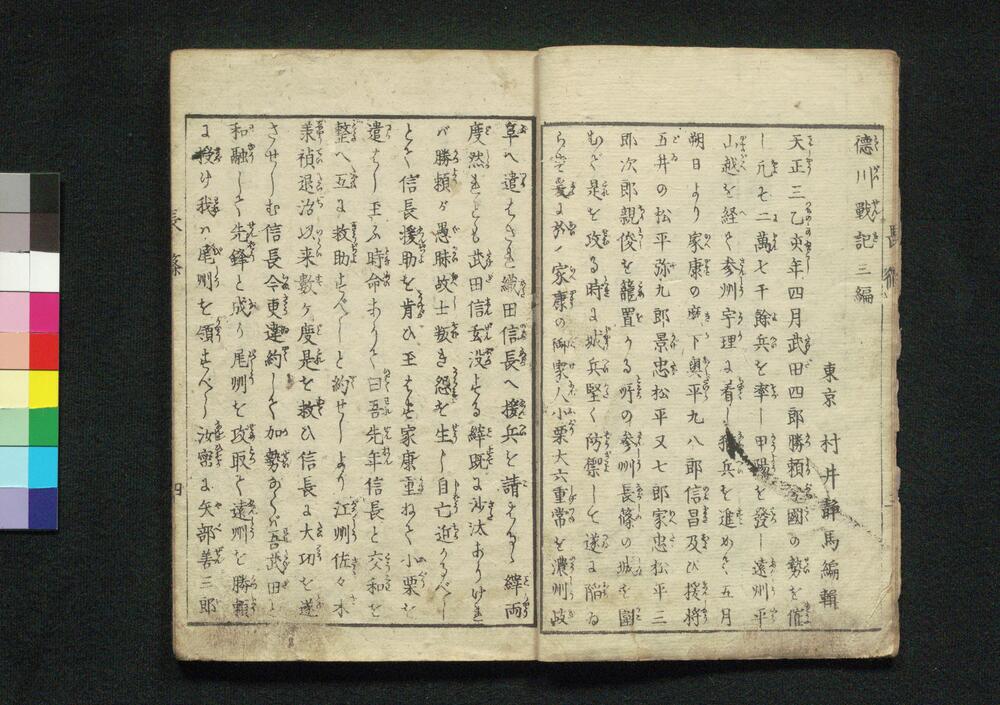 徳川戰記三編
東京 村井靜馬編輯
天正三乙亥年四月武田四郎勝頼全國の勢を催
し凡そ二萬七千餘兵を率し甲陽を發し遠州平
山越を経て参州宇理に着し狼兵を進めさ五月
朔日より家康の麾下奥平九八郎信昌及び援將
五井の松平弥九郎景忠松平又七郎家忠松平三
郎次郎親俊を籠置ける所の参州長篠の城を圍
むで是を攻る時に城兵堅く防禦して遂に陥ゐ
らず爰に於て家康の御家人小栗大六重常を濃州岐
阜へ遣はされ織田信長へ援兵を請はるゝ緯両
度然れども武田信玄没する緯既に沙汰ありけれ
バ勝頼ガ愚昧故士叛き怨を生し自亡近かるべし
とて信長援助を肯ひ玉はず家康重ねて小栗を
遣はし玉ふ時命ありて曰吾先年信長と交和を
整へ互に救助すべしと約せしより江州佐々木
美禎退治以来數ヶ度是を救ひ信長に大功を遂
させしむ信長今更違約して加勢なくバ吾武田と
和融して先鋒と成り尾州を攻取て遠州を勝頼
に授け我ハ尾州を領すべし汝密に矢部善三郎
長篠
四